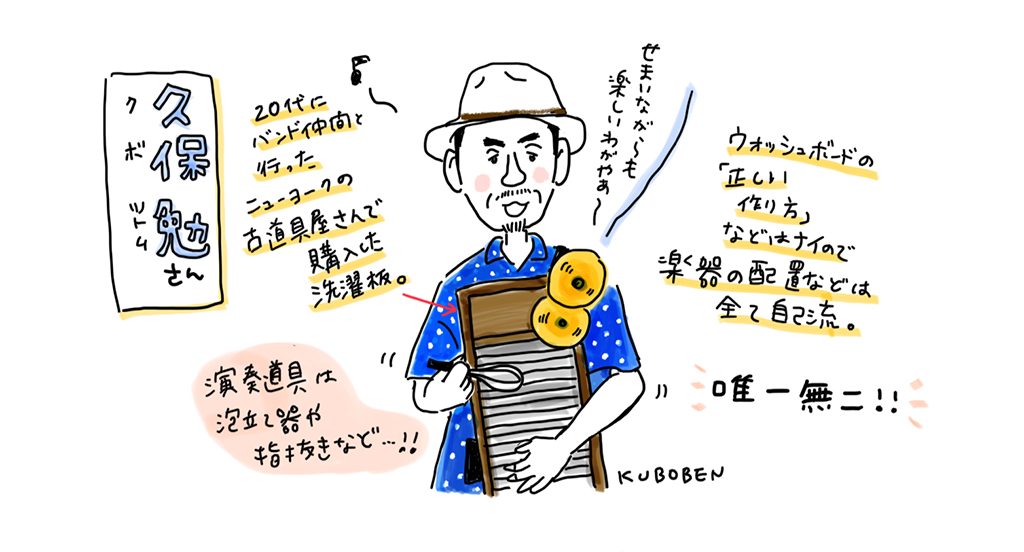 久保 勉さん
クボ ツトム
20代に
バンド仲間と
行った
ニューヨークの
古道具屋さんで
購入した
洗濯板。
せまいながら〜も
楽しいわがやぁ〜
ウォッシュボードの
「正しい
作り方」
などはナイので
楽器の配置などは
全て自己流。
演奏道具は
泡立て器や
指抜きなど…!!
唯一無二!!
KUBOBEN